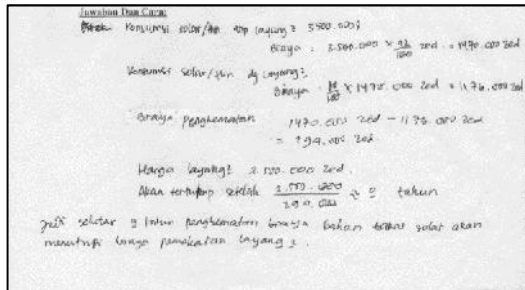 Jawaban Dan Cara:
Konsumsi solar/thn tnp layang2 3.500.000;
Biaya : 3.500.000 × 42/100 zed = 1470.000 zed
Konsumsi solar/thn dg layang2,
Biaya = 80/100 × 1470.000 zed = 1176.000 zed
Biaya penghematan 1470.000 zed - 1176.000 zed
= 294.000 zed
Harga layang2 2.500.000 zed.
Akan tertutup setelah 2.500.000 / 294.000 ≈ 9 tahun
Jadi sekitar 9 tahun penghematan biaya bahan bakar solar akan
menutupi biaya pemakaian layang2.